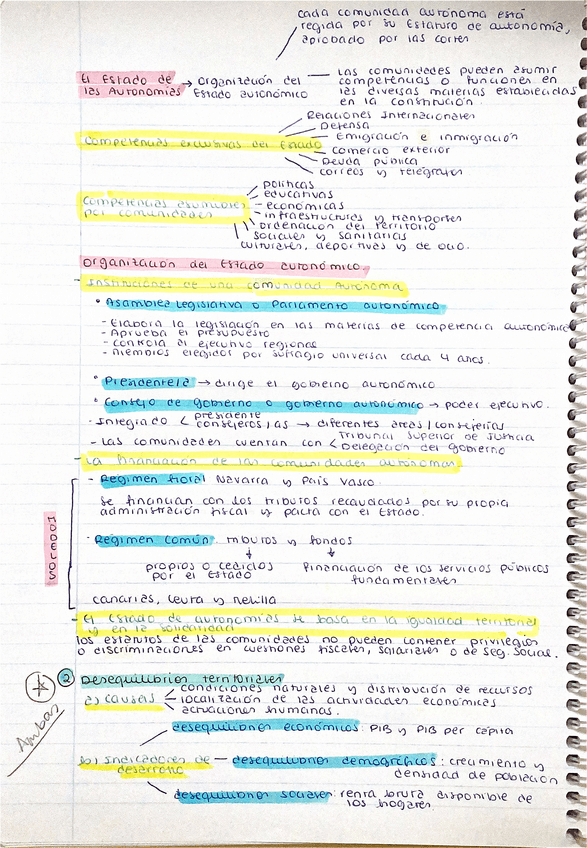 cada comunidad autónoma está
regida por su Estatuto de autonomía,
aprobado por las cortes
El Estado de
las Autonomías → Organización del
Estado autonómico
Las comunidades pueden asumir
competencias o funciones en
las diversas materias establecidas
en la constitución.
Competencias exclusivas del Estado
Relaciones Internacionales
Defensa
Emigración e inmigración
comercio exterior
Deuda pública
correos y telégrafos
Competencias asumibles
por comunidades
políticas
educativas
económicas
infraestructuras y transportes
ordenación del territorio
sociales y sanitarias
culturales, deportivas y de ocio.
Organización del Estado autonómico.
- Instituciones de una comunidad Autónoma
• Asamblea Legislativa o Parlamento autonómico
- Elabora la legislación en las materias de competencia autonómica
- Aprueba el presupuesto
- controla al ejecutivo regional
- Miembros elegidos por sufragio universal cada 4 años.
• Presidente/a → dirige el gobierno autonómico
• Consejo de gobierno o gobierno autonómico → poder ejecutivo.
- Integrado < presidente
consejeros/as → diferentes áreas/consejerías
- Las comunidades cuentan con < Tribunal Superior de Justicia
Delegación del Gobierno
- La financiación de las comunidades autónomas
MODELOS
- Régimen foral Navarra y País Vasco.
Se financian con los tributos recaudados por su propia
administración fiscal y pacta con el Estado.
- Régimen común. tributos y fondos
propios o cedidos
por el Estado
financiación de los servicios públicos
fundamentales
canarias, ceuta y melilla
- El Estado de autonomías se basa en la igualdad territorial
y en la solidaridad
los estatutos de las comunidades no pueden contener privilegios
o discriminaciones en cuestiones fiscales, salariales o de seg. social.
Ambas
2 Desequilibrios territoriales
a) Causas
condiciones naturales y distribución de recursos
localización de las actividades económicas
actuaciones humanas.
b) Indicadores de
desarrollo
desequilibrios económicos: PIB y PIB per cápita
desequilibrios demográficos: crecimiento y
densidad de población
desequilibrios sociales: renta bruta disponible de
los hogares